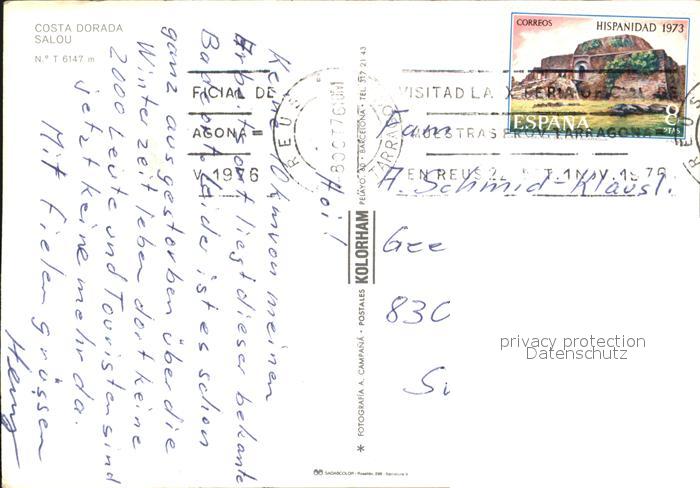 COSTA DORADA
SALOU
N.º T 6147 m
Hoi!
Keine 10 km von meinen
Arbeitsort liegt dieser bekante
Badeort. Leider ist es schon
ganz ausgestorben über die
Winterzeit leben dort keine
2000 Leute und Touristen sind
jetzt keine mehr da.
Mit fielen grüssen
* FOTOGRAFIA A. CAMPAÑÁ - POSTALES KOLORHAM PELAYO, 40 - BARCELONA - TEL. 317 21 43
SADAGCOLOR
CORREOS
HISPANIDAD 1973
ESPAÑA
8
PTAS
FICIAL DE
AGONA=
V. 1976
REUS
8 OCT 76
TARRAGO
VISITAD LA
DE
MUESTRAS PROV. TARRAGONA=
EN REUS 1 NOV. 1976
A. Schmid-Kläusl.
Gee
830
Si
privacy protection
Datenschutz